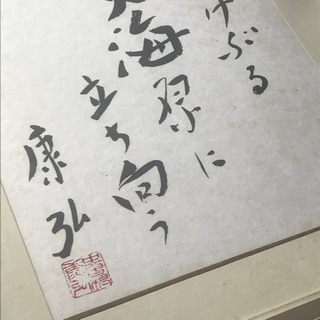 けぶる
大海原に
立ち向う
康弘